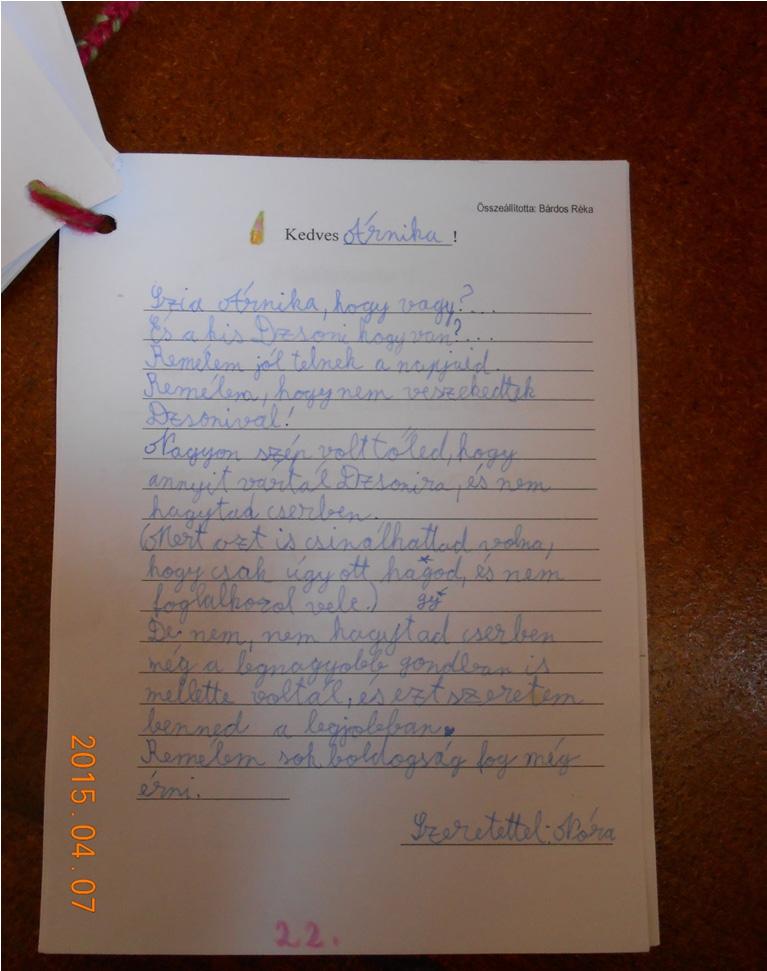 Összeállította: Bárdos Réka
Kedves Árnika !
Szia Árnika, hogy vagy?...
És a kis Dzsoni hogy van?...
Remélem jól telnek a napjaid.
Remélem, hogy nem veszekedtek
Dzsonival!
Nagyon szép volt tőled, hogy
annyit vártál Dzsonira, és nem
hagytad cserben.
(Mert azt is csinálhattad volna,
hogy csak úgy ott ha*god, és nem
foglalkozol vele.) gy*
De nem, nem hagytad cserben
még a legnagyobb gondban is
mellette voltál, és ezt szeretem
benned a legjobban.
Remélem sok boldogság fog még
érni.
Szeretettel: Nóra
22.
2015.04.07